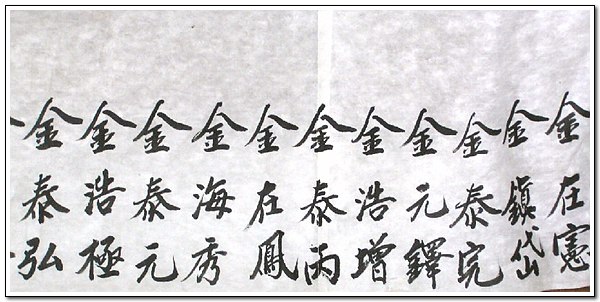 金在憲
金鎮岱
金泰完
金元鐸
金浩增
金泰丙
金在鳳
金海秀
金泰元
金浩極
金泰弘